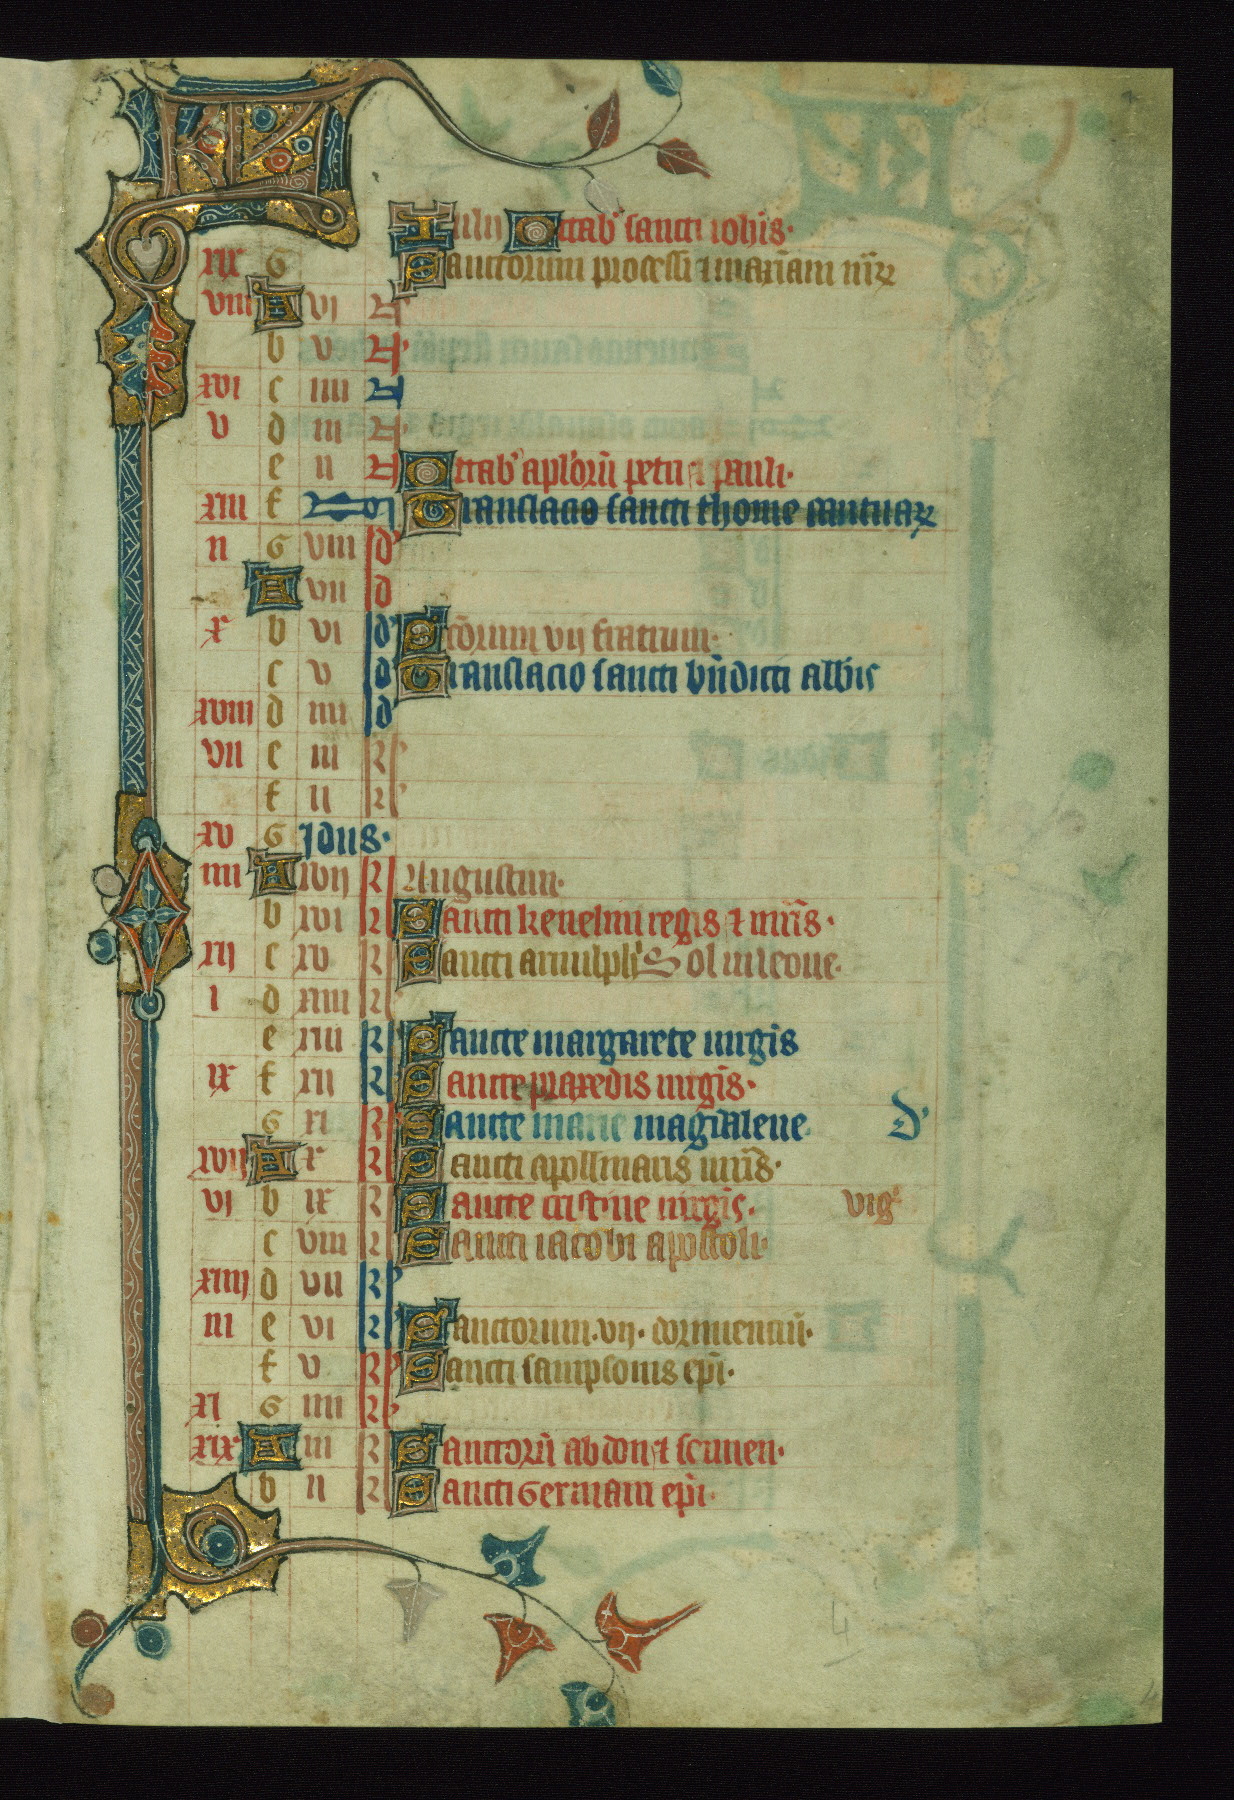 KL Iulii Octab' sancti iohis·
xix G Sanctorum processi & mariniani mr̄
viii A vi N
b v N
xvi c iiii N
v d iii N
e ii N Octab' aplorū petri & pauli·
xiii f Non Translacio sancti thome
ii G viii Id'
A vii Id
x b vi Id' Scōrum vij fratrum·
c v Id' Translacio sancti bn̄dicti abbis
xviii d iiii Id'
vii e iii Id'
f ii Id'
xv G Idus·
iiii A xvij kl Augustini·
b xvi kl Sancti kenelmi regis & mr̄is·
xii c xv kl Sancti arnulphi Sol in leone·
i d xiiii kl
e xiii kl Sancte margarete uirgis
ix f xii kl Sancte praxedis uirgis·
G xi kl Sancte marie magdalene· D'
xvij A x kl Sancti apollinaris mr̄is·
vi b ix kl Sancte cristine uirgis· vig
c viii kl Sancti iacobi apostoli·
xiiij d vii kl
iii e vi kl Sanctorum·vij·dormientiū·
f v kl Sancti sampsonis epī·
xi G iiii kl
xix A iii kl Sanctorū abdon & sennen·
b ii kl Sancti Germani epī·
4